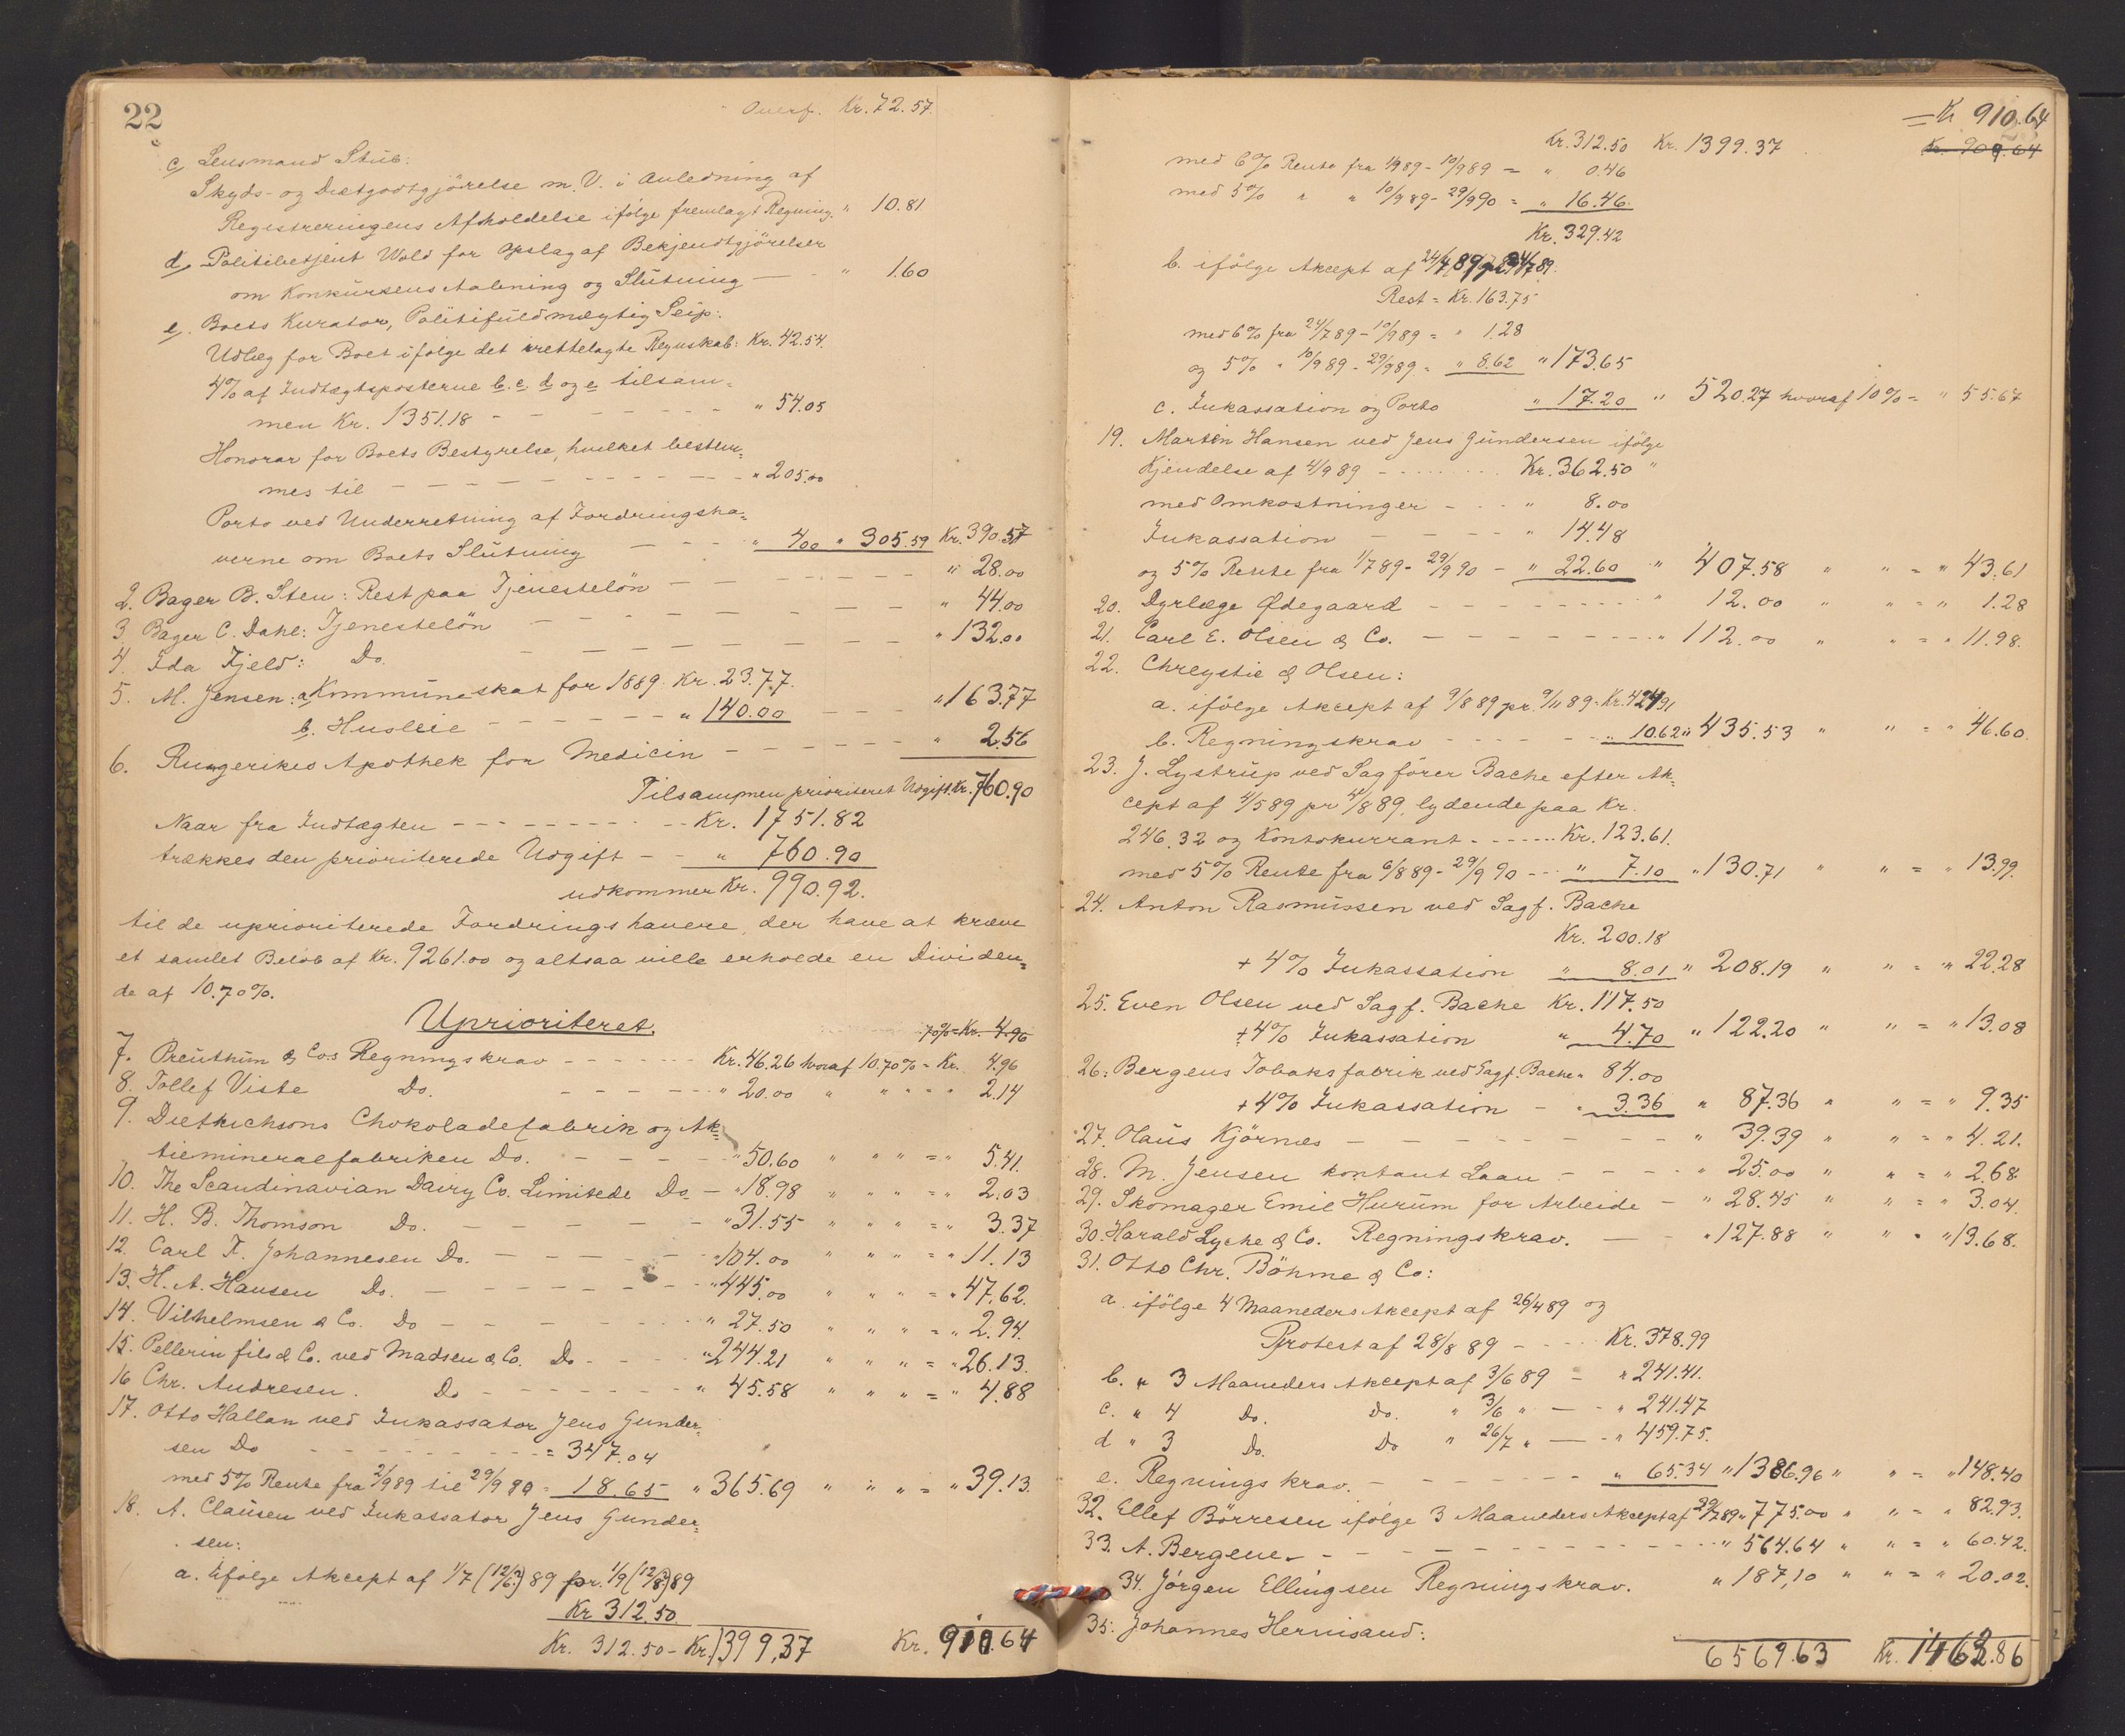 22
Overf. Kr. 72.57.
c, Lensmand Stub:
Skyds- og Diætgodtgjörelse m. V. i Anledning af
Registreringens Afholdelse ifölge fremlagt Regning. " 10.81
d, Politibetjent Wold for Opslag af Bekjendtgjörelser
om Konkursens Aabning og Slutning — " 1.60
e, Boets Kurator, Politifuldmægtig Seip:
Udlæg for Boet ifölge det irettelagte Regnskab: Kr. 42.54.
4% af Indtægtsposterne b. c. d og e tilsam=
men Kr. 1351.18 - - - - - - " 54.05
Honorar for Boets Bestyrelse, hvilket bestem=
mes til - - - - - - - - - " 205.00
Porto ved Underretning af Fordringsha=
verne om Boets Slutning — - - " 4/00 " 305.59 Kr. 390.57
2. Bager B. Sten: Rest paa Tjenestelön - - - - - - " 28.00
3. Bager C. Dahl: Tjenestelön - - - - - - " 44.00
4. Ida Fjeld: Do. - - - - - - " 132.00
5. M. Jensen: a, Kommuneskat for 1889. Kr. 23.77.
b. Husleie - - - - - - " 140.00 - - - " 163.77
6. Ringerikes Apothek for Medicin - - - - - - " 2.56
Tilsammen prioriteret Udgift. Kr. 760.90
Naar fra Indtægten - - - - - - - - Kr. 1751.82
trækkes den prioriterede Udgift - - " 760.90
udkommer Kr. 990.92.
til de uprioriterede Fordringshavere, der have at kræve
et samlet Belöb af Kr. 9261.00 og altsaa ville erholde en Dividen=
de af 10.70%.
Uprioriteret. 70% = Kr. 4.96
7. Preuthun & Cos Regningskrav - - - - - - Kr. 46.26 hvoraf 10.70% = Kr. 4.96
8. Tollef Viste Do. - - - - - " 20.00 " " " " 2.14
9. Diethichsons Chokoladefabrik og Ak=
tiemineralfabriken Do. - - - - - " 50.60 " " " = " 5.41.
10. The Scandinavian Dairy Co. Limitede Do - " 18.98 " " " = " 2.03
11. H. B. Thomson Do. - - - - - - " 31.55 " " " = " 3.37
12. Carl F. Johannesen Do. - - - - - " 104.00 " " " = " 11.13
13. H. A. Hansen Do. - - - - - - " 445.00 " " " = " 47.62.
14. Vilhelmsen & Co. Do - - - - - - " 27.50 " " " = " 2.94.
15. Pellerin fils & Co. ved Madsen & Co. Do - - - " 244.21 " " " = " 26.13.
16 Chr. Andresen. Do - - - - - - " 45.58 " " " = " 4.88
17. Otto Hallan ved Inkassator Jens Gunder=
sen Do - - - - - - - - = 347.04 "
med 5% Rente fra 2/9 89 til 29/9 90 = 18.65 " 365.69 " " " = " 39.13.
18. A. Clausen ved Inkassator Jens Gunder=
sen:
a. ifölge Akcept af 1/7 (12/6?) 89 pr. 1/9 (12/8?) 89
Kr 312.50
Kr. 312.50 - Kr. 1399,37 Kr. 910.64
= Kr 910.64
Kr. 312.50 Kr. 1399.37 Kr. 909.64
med 6% Rente fra 1/9 89 - 10/9 89 = " 0.46
med 5% " " 10/9 89 - 29/9 90 = " 16.46.
Kr. 329.42
b. ifölge Akcept af 24/4 89 pr 24/7 89.
Rest = Kr. 163.75
med 6% fra 24/7 89 - 10/9 89 = " 1.28
og 5% " 10/9 89 - 29/9 89 = " 8.62 " 173.65
c. Inkassation og Porto " 17.20 " 520.27 hvoraf 10% = " 55.67
19. Martin Hansen ved Jens Gundersen ifölge
Kjendelse af 4/9 89 - - - - - Kr. 362.50 "
med Omkostninger - - - " 8.00
Inkassation - - - - - " 14.48
og 5% Rente fra 1/7 89 - 29/9 90 - " 22.60 " 407.58 " " = " 43.61
20. Dyrlæge Ødegaard - - - - - - - - " 12.00 " " = " 1.28
21. Carl E. Olsen & Co. - - - - - - - - " 112.00 " " = " 11.98.
22. Chrystie & Olsen:
a. ifölge Akcept af 9/8 89 pr. 9/11 89 - Kr. 424.91
b. Regningskrav - - - - - " 10.62 " 435.53 " " = " 46.60.
23. J. Lystrup ved Sagförer Bache efter Ak=
cept af 4/5 89 pr 4/8 89, lydende paa Kr.
246.32 og Kontokurrant - - - - - Kr. 123.61.
med 5% Rente fra 6/8 89 - 29/9 90 - - - " 7.10 " 130.71 " " = " 13.99.
24. Anton Rasmussen ved Sagf. Bache
Kr. 200.18
+ 4% Inkassation " 8.01 " 208.19 " " = " 22.28
25. Even Olsen ved Sagf. Bache Kr. 117.50
+ 4% Inkassation " 4.70 " 122.20 " " = " 13.08
26. Bergens Tobaksfabrik ved Sagf. Bache " 84.00
+ 4% Inkassation - " 3.36 " 87.36 " " = " 9.35
27. Olaus Kjörnæs - - - - - - - - " 39.39 " " = " 4.21.
28. M. Jensen kontant Laan - - - - " 25.00 " " = " 2.68.
29. Skomager Emil Hurum for Arbeide - " 28.45 " " = " 3.04.
30. Harald Lyche & Co. Regningskrav. - - " 127.88 " " = " 13.68.
31. Otto Chr. Böhme & Co:
a. ifölge 4 Maaneders Akcept af 26/4 89 og
Protest af 28/8 89 - - - Kr. 378.99
b. " 3 Maaneders Akcept af 3/6 89 - " 241.41.
c. " 4 Do. Do. " 3/6 " - - " 241.47
d " 3 Do. Do " 26/7 " - - " 459.75.
e. Regningskrav. - - - - - - - " 65.34 " 1386.96 " " = " 148.40
32. Ellef Börresen ifölge 3 Maaneders Akcept af 29/7 89 " 775.00 " " = " 82.93.
33. A. Bergene. - - - - - - - - - " 564.64 " " = " 60.42.
34. Jörgen Ellingsen Regningskrav. " 187,10 " " = " 20.02.
35. Johannes Hernisand:
6569.63 Kr. 1463.86